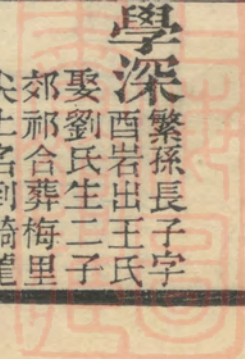 學深
繁孫長子字
酉岩出王氏
娶劉氏生二子
郊祁合葬梅里
尖土名到騎龍